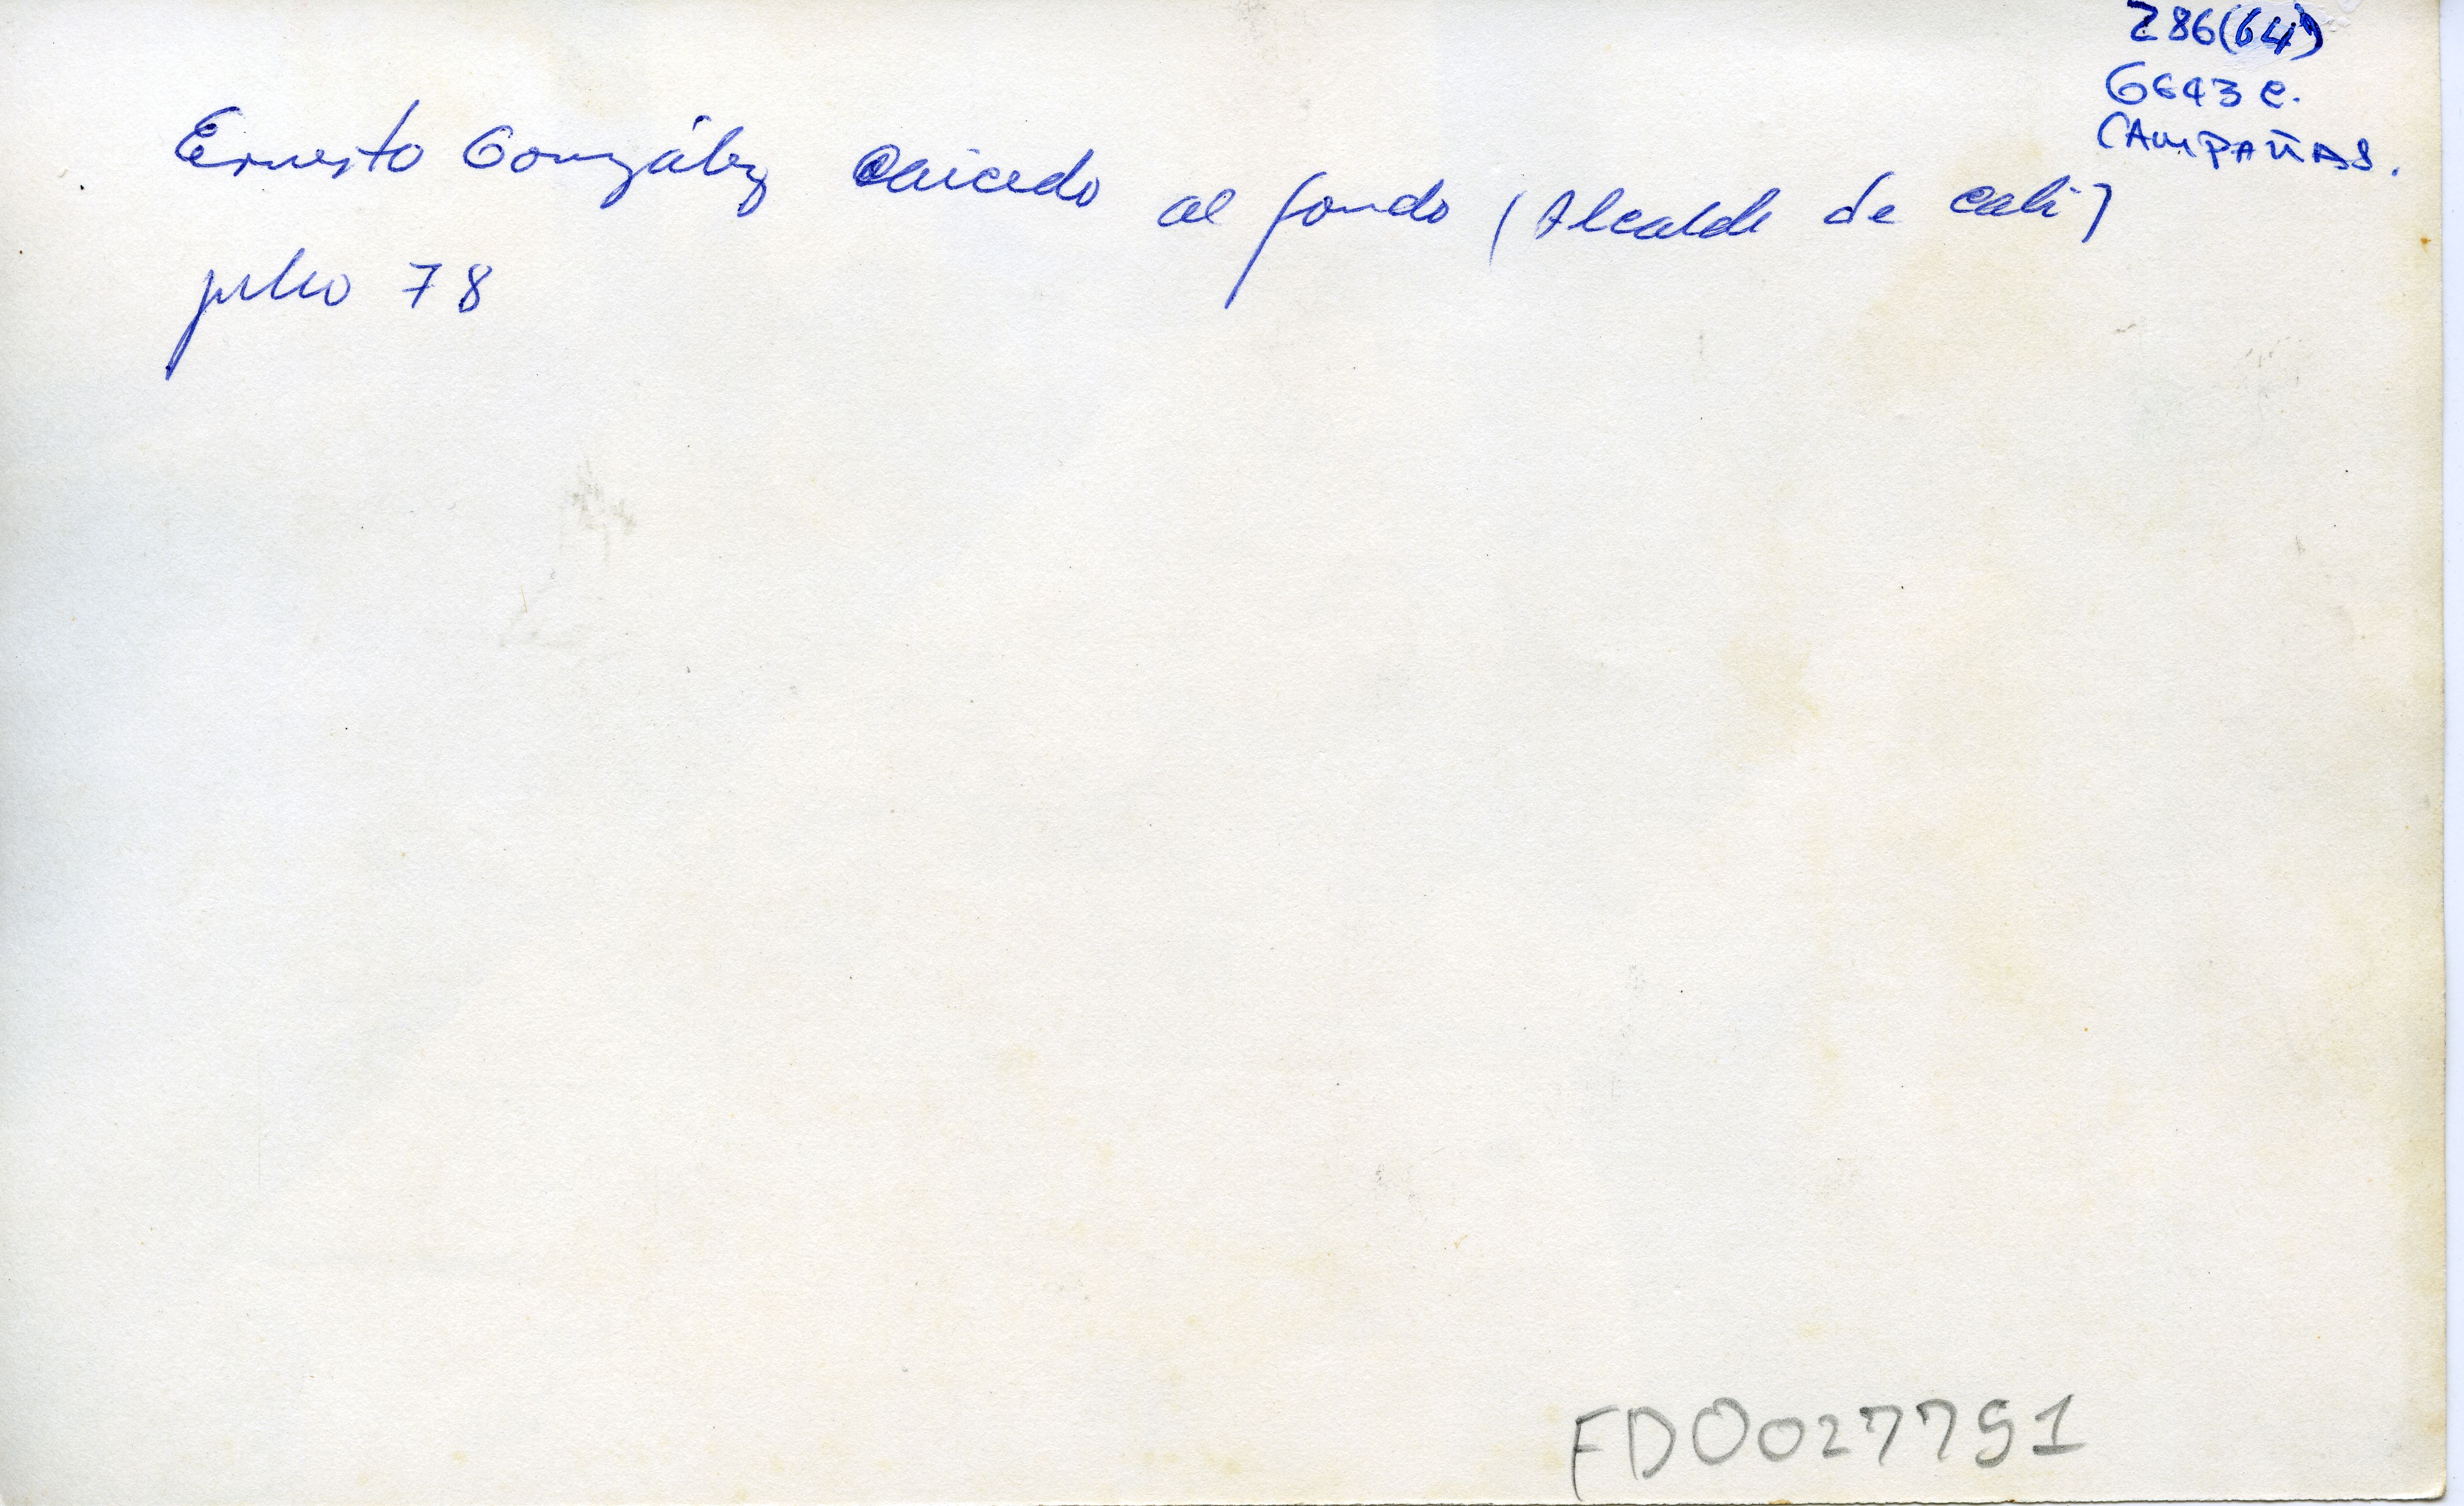 286(64)
G643e.
CAMPAÑAS.
Ernesto González Caicedo al fondo (Alcalde de Cali)
julio 78
FD0027791